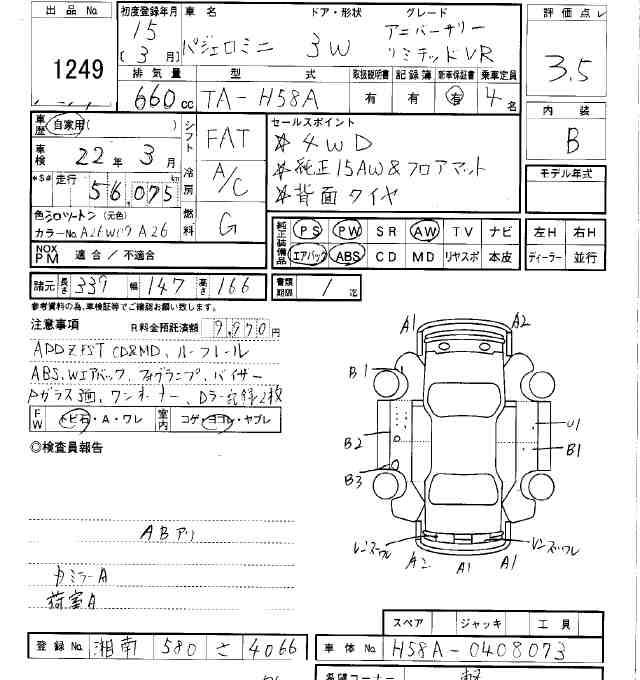 出品No. 初度登録年月 車名 ドア・形状 グレード 評価点
1249 15 (3月) パジェロミニ 3W アニバーサリーリミテッドVR 3.5
排気量 型式 取扱説明書 記録簿 新車保証書 乗車定員
660cc TA-H58A 有 有 有 4名
内装
B
モデル年式
車歴 自家用( ) シフト FAT セールスポイント
車検 22年3月 冷房 A/C ＊4WD
*$# 走行 56,075 km ＊純正15AW&フロアマット
＊背面タイヤ
色 シロツートン (元色) 燃料 G
カラーNo. A26W09A26
NOX PM 適合 / 不適合
純正装備品 PS PW SR AW TV ナビ 左H 右H
エアバック ABS CD MD リヤスポ 本皮 ディーラー 並行
諸元 長さ 339 幅 147 高さ 166 書類期限 / 迄
参考資料の為、車検証等でご確認お願い致します。
注意事項 R料金預託済額 9,970円
ADDZEST CD&MD、ルーフレール
ABS、Wエアバック、フォグランプ、バイザー
Pガラス3面、ワンオーナー、Dラー記録2枚
FW トビ石・A・ワレ 室内 コゲ・ヨゴレ・ヤブレ
◎検査員報告
ABアリ
カミラーA
荷室A
A1 A2
B1
B2 U1
B3 B1
レンズワレ A2 A1 A1 レンズワレ
スペア ジャッキ 工具
登録No. 湘南 580 さ 4066 車体No. H58A-0408073
希望コーナー 軽